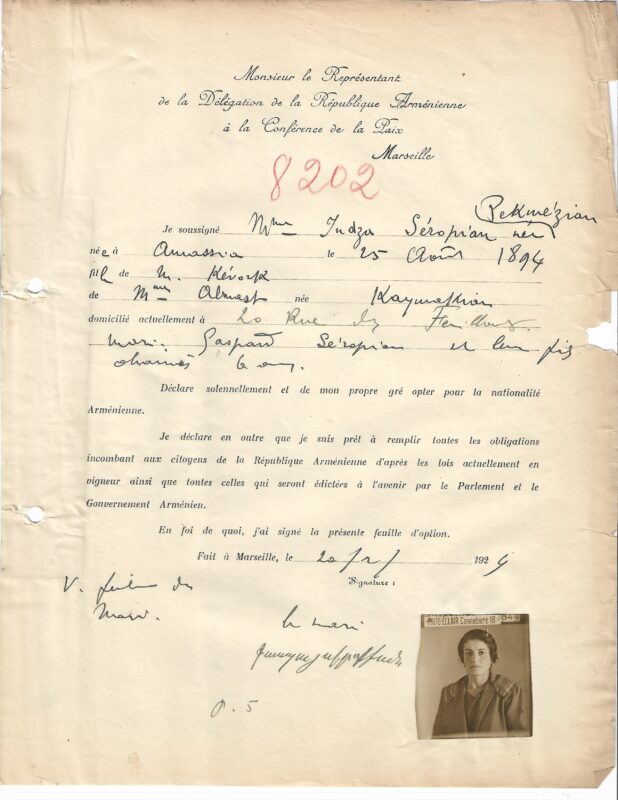 Monsieur le Représentant
de la Délégation de la République Arménienne
à la Conférence de la Paix
Marseille
8202
Pekmézian
Je soussigné Mme Indza Séropian née
née à Amassia le 25 Août 1894
fille de M. Kévork
de Mme Almast née Kaymakian
domicilié actuellement à 20 Rue
mari: Gaspard Séropian et leur fils
6 ans.
Déclare solennellement et de mon propre gré opter pour la nationalité
Arménienne.
Je déclare en outre que je suis prêt à remplir toutes les obligations
incombant aux citoyens de la République Arménienne d'après les lois actuellement en
vigueur ainsi que toutes celles qui seront édictérs à l'avenir par le Parlement et le
Gouvernement Arménien.
En foi de quoi, j'ai signé la présente feuille d'option.
Fait à Marseille, le 20/2/ 1924
Signature :
V. du
Mari.
le mari
PHOTO-ECLAIR Cannebière 18 844